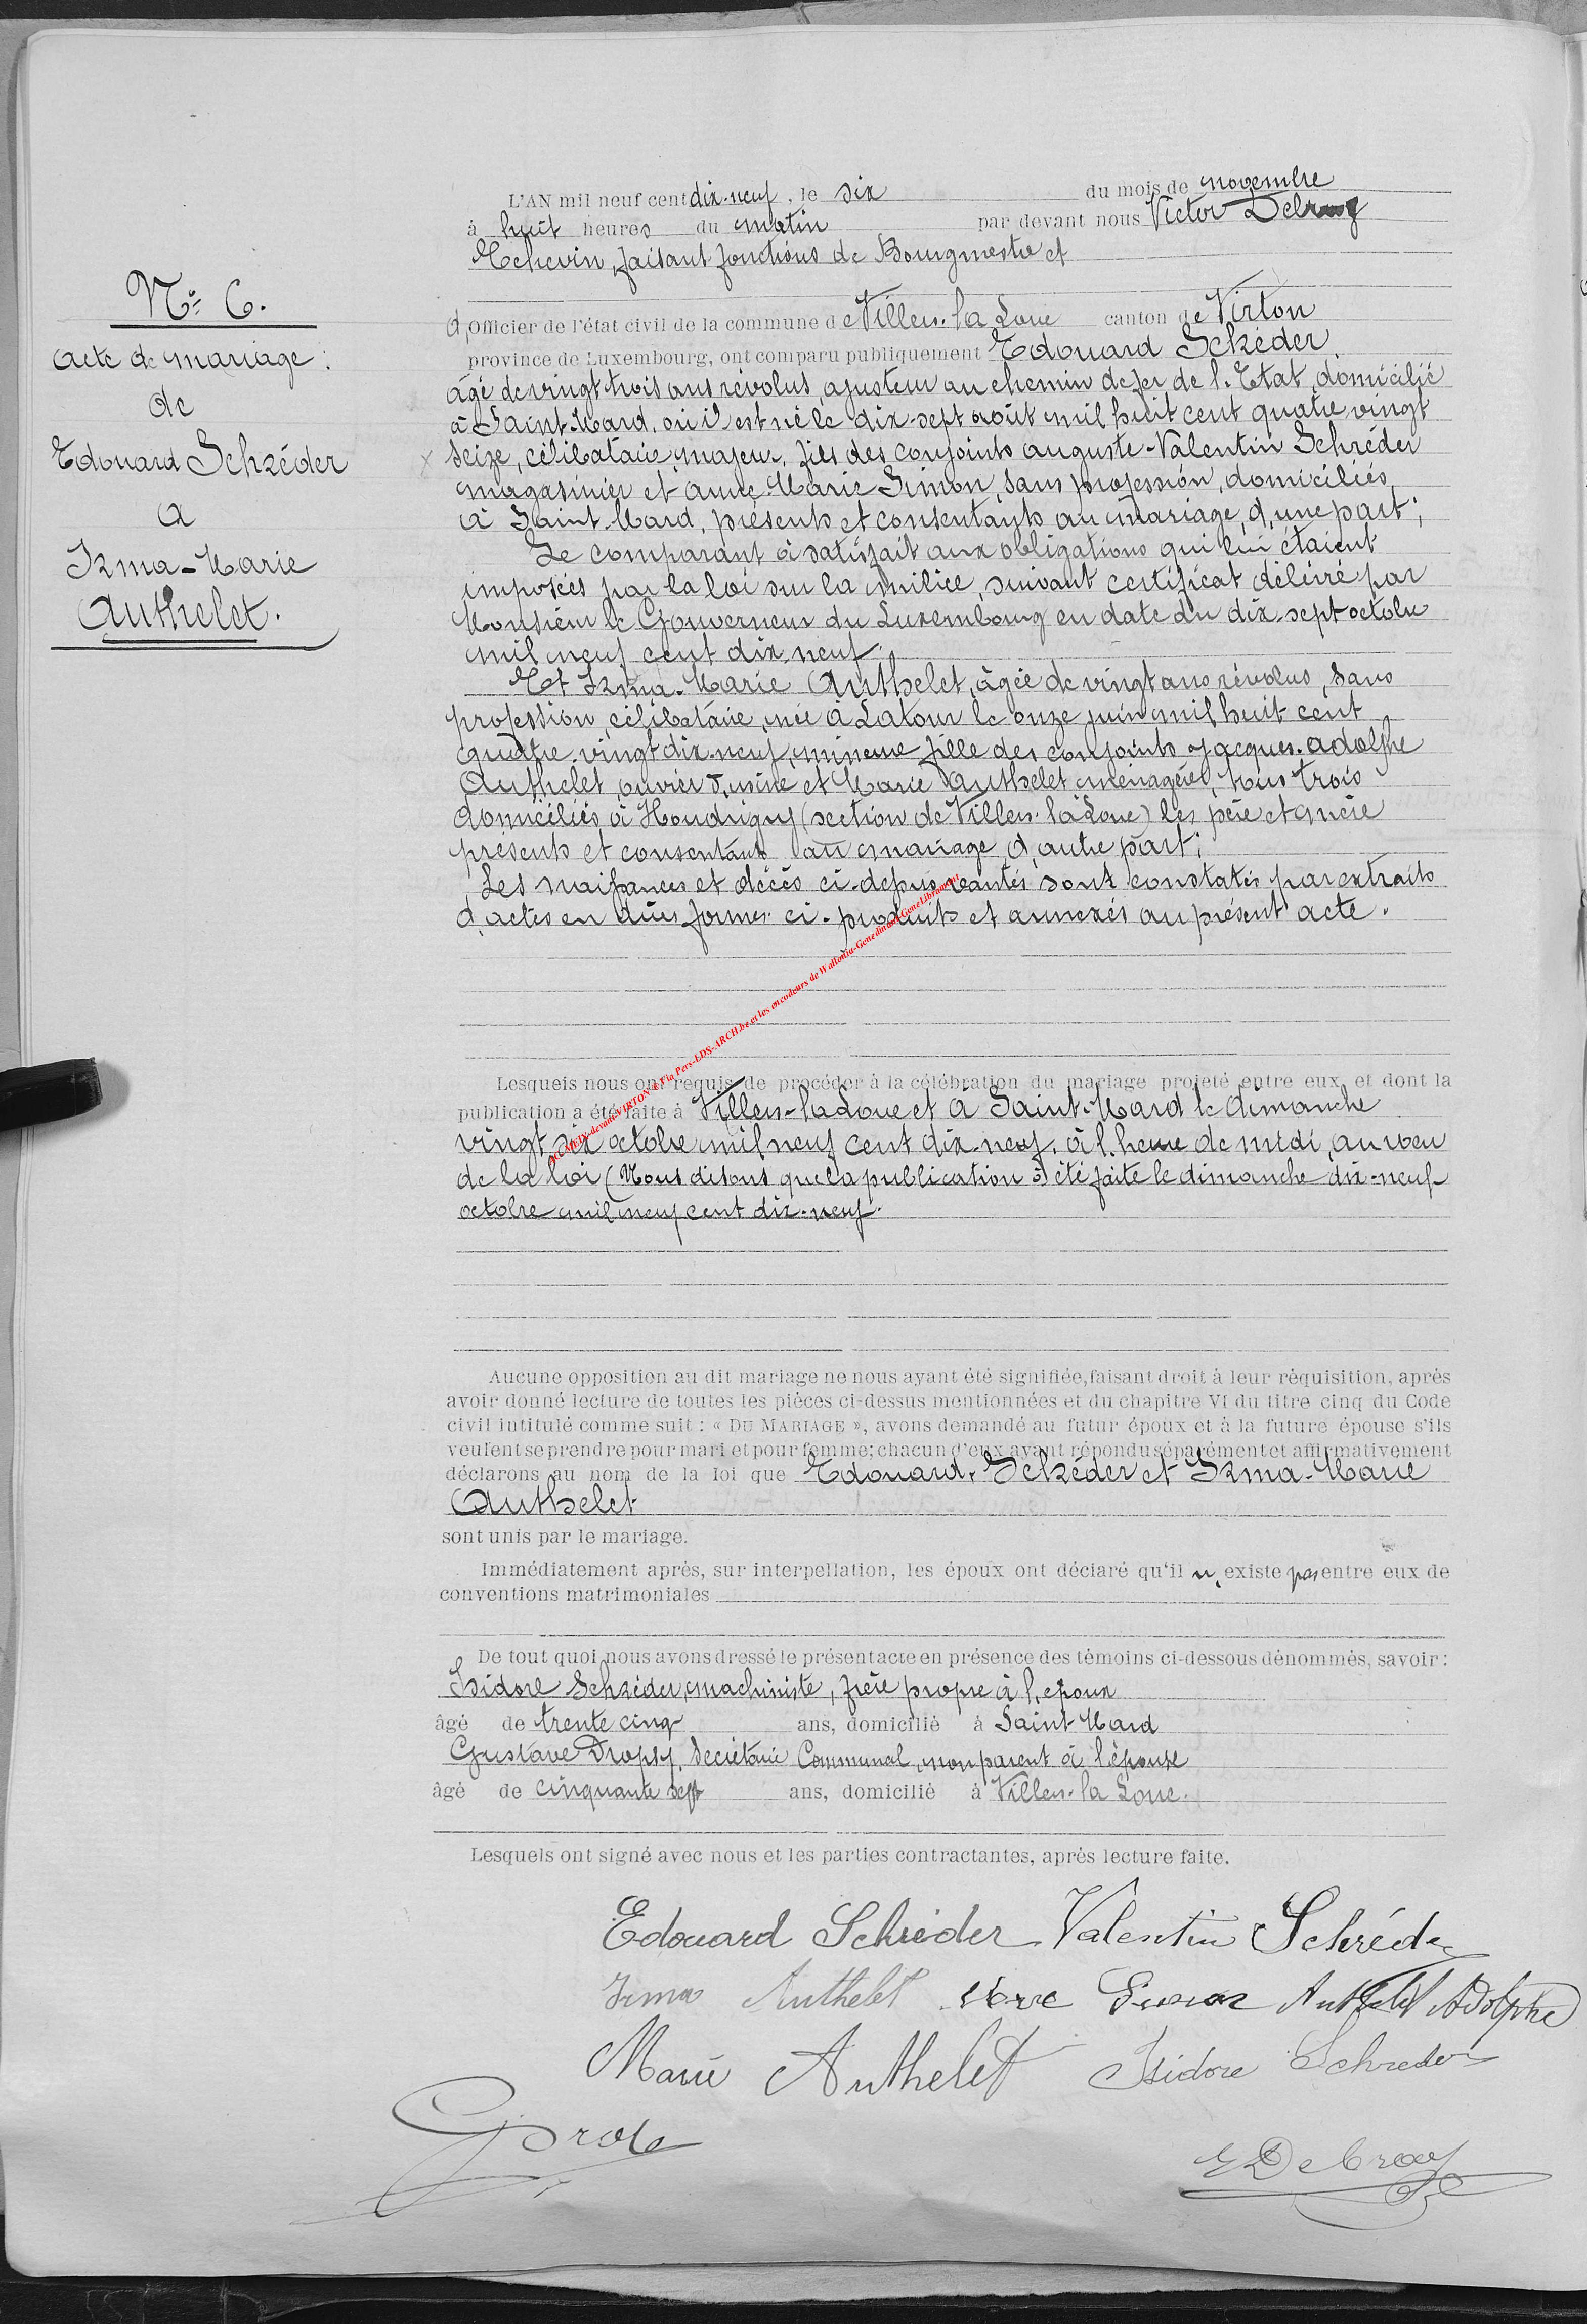 N° 6.
Acte de mariage :
de
Edouard Schréder
a
Irma-Marie
Authelet.
L'AN mil neuf cent dix-neuf, le six du mois de novembre
à huit heures du matin par devant nous Victor
Echevin, faisant fonctions de Bourgmestre et
d'Officier de l'état civil de la commune de Villers-la Loue canton de Virton
province de Luxembourg, ont comparu publiquement Edouard Schréder,
âgé de vingt-trois ans révolus, ajusteur au chemin de fer de l'Etat, domicilié
à Saint-Mard, où il est né le dix-sept août mil huit cent quatre vingt
seize, célibataire, majeur, fils des conjoints Auguste-Valentin Schréder
magasinier et Anne-Marie Simon, sans profession, domiciliés
à Saint-Mard, présents et consentants au mariage, d'une part ;
Le comparant à satisfait aux obligations qui lui étaient
imposées par la loi sur la milice, suivant certificat délivré par
Monsieur le Gouverneur du Luxembourg en date du dix-sept octobre
mil neuf cent dix neuf.
Et Irma-Marie Authelet, âgée de vingt ans révolus, sans
profession, célibataire, née à Latour le onze juin mil huit cent
quatre-vingt dix-neuf, mineure fille des conjoints Jacques-Adolphe
Authelet, ouvrier d'usine et Marie Authelet ménagère, tous trois
domiciliés à Houdrigny (section de Villers-la Loue) les père et mère
présents et consentants au mariage, d'autre part ;
Les naissances et décès ci-dessus relatés sont constatés par extraits
d'actes en dues formes ci-produits et annexés au présent acte.
Lesquels nous ont requis de procéder à la célébration du mariage projeté entre eux et dont la
publication a été faite à Villers-la Loue et à Saint-Mard le dimanche
vingt six octobre mil neuf cent dix-neuf, à l'heure de midi, au vœu
de la loi (Nous disons que la publication à été faite le dimanche dix-neuf
octobre mil neuf cent dix-neuf.
Aucune opposition au dit mariage ne nous ayant été signifiée, faisant droit à leur réquisition, après
avoir donné lecture de toutes les pièces ci-dessus mentionnées et du chapitre VI du titre cinq du Code
civil intitulé comme suit : « DU MARIAGE », avons demandé au futur époux et à la future épouse s'ils
veulent se prendre pour mari et pour femme; chacun d'eux ayant répondu séparément et affirmativement
déclarons au nom de la loi que Edouard Schréder et Irma-Marie
Authelet
sont unis par le mariage.
Immédiatement après, sur interpellation, les époux ont déclaré qu'il n'existe pas entre eux de
conventions matrimoniales
De tout quoi nous avons dressé le présent acte en présence des témoins ci-dessous dénommés, savoir :
Isidore Schréder, machiniste, frère propre à l'époux
âgé de trente cinq ans, domicilié à Saint-Mard
Gustave Dropsy, Secrétaire Communal, non parent à l'épouse
âgé de cinquante sept ans, domicilié à Villers-la Loue.
Lesquels ont signé avec nous et les parties contractantes, après lecture faite.
Edouard Schréder Valentin Schréder
Irma Authelet Authelet Adolphe
Marie Authelet Isidore Schreder